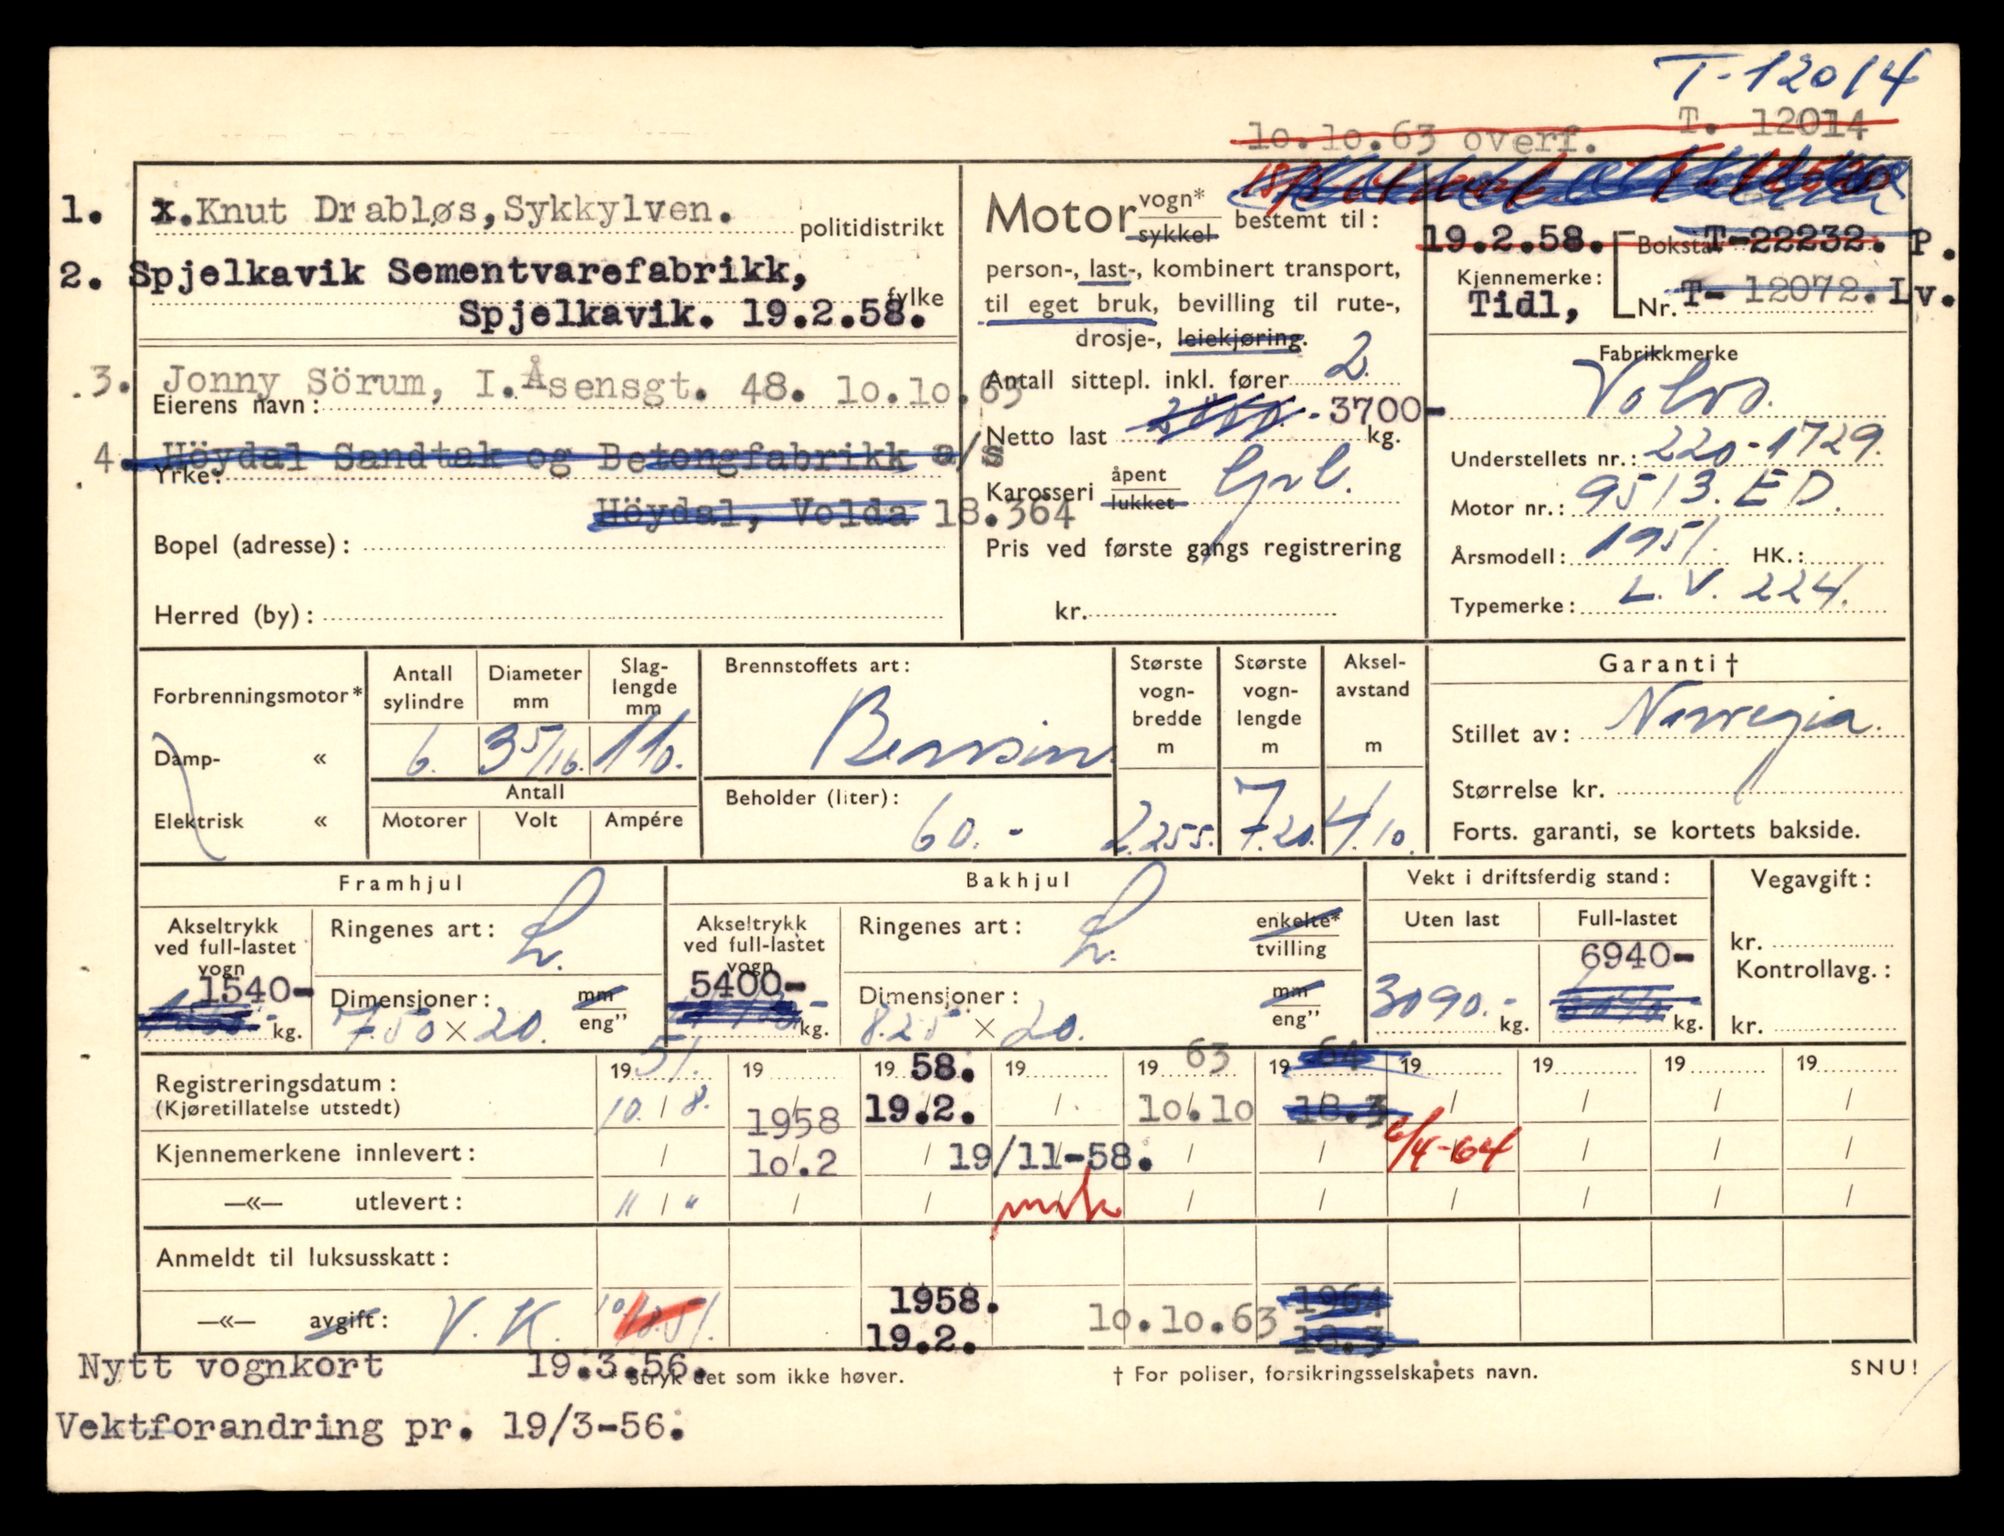 T-12014
10.10.63 overf. T. 12014
1. x.Knut Drabløs, Sykkylven. politidistrikt
2. Spjelkavik Sementvarefabrikk, fylke
Spjelkavik. 19.2.58.
3. Jonny Sörum, I.Åsensgt. 48. 10.10.63
Eierens navn:
4. Höydal Sandtak og Betongfabrikk a/s
Yrke:
Höydal, Volda 18.364
Bopel (adresse):
Herred (by):
Motor vogn* sykkel bestemt til:
person-, last-, kombinert transport,
til eget bruk, bevilling til rute-,
drosje-, leiekjøring.
Antall sittepl. inkl. fører 2
Netto last 3700- kg.
Karosseri åpent lukket
Pris ved første gangs registrering
kr.
19.2.58. Bokstav T-22232. P.
Kjennemerke:
Tidl, Nr. T- 12072. Lv.
Fabrikkmerke
Volvo.
Understellets nr.: 220-1729.
Motor nr.: 9513. ED.
Årsmodell: 1951. HK.:
Typemerke: L.V. 224.
Forbrenningsmotor*
Damp- «
Elektrisk «
Antall sylindre 6.
Diameter mm 3 5/16.
Slag-lengde mm 110.
Antall
Motorer Volt Ampére
Brennstoffets art:
Bensin
Beholder (liter): 60.-
Største vogn-bredde m 2.255.
Største vogn-lengde m 7.20.
Aksel-avstand m 4.10.
Garanti †
Stillet av: Norvegia.
Størrelse kr.
Forts. garanti, se kortets bakside.
Framhjul
Akseltrykk ved full-lastet vogn
1540- kg.
Ringenes art: L.
Dimensjoner: mm eng"
7.50 × 20.
Bakhjul
Akseltrykk ved full-lastet vogn
5400- kg.
Ringenes art: L. enkelte* tvilling
Dimensjoner: mm eng"
8.25 × 20.
Vekt i driftsferdig stand:
Uten last Full-lastet
3090.- kg. 6940- kg.
Vegavgift:
kr.
Kontrollavg.:
kr.
Registreringsdatum: 19 51. 19 19 58. 19 19 63 19 64 19 19 19 19
(Kjøretillatelse utstedt) 10. / 8. 1958 19.2. 10.10 18.3
Kjennemerkene innlevert: 10.2 19/11-58. 6/4-64
—«— utlevert: " / "
Anmeldt til luksusskatt:
—«— avgift: V. K. 10/8.51. 1958. 19.2. 10.10.63 1964 18.3
Nytt vognkort 19.3.56.
* Stryk det som ikke høver. † For poliser, forsikringsselskapets navn. SNU!
Vektforandring pr. 19/3-56.